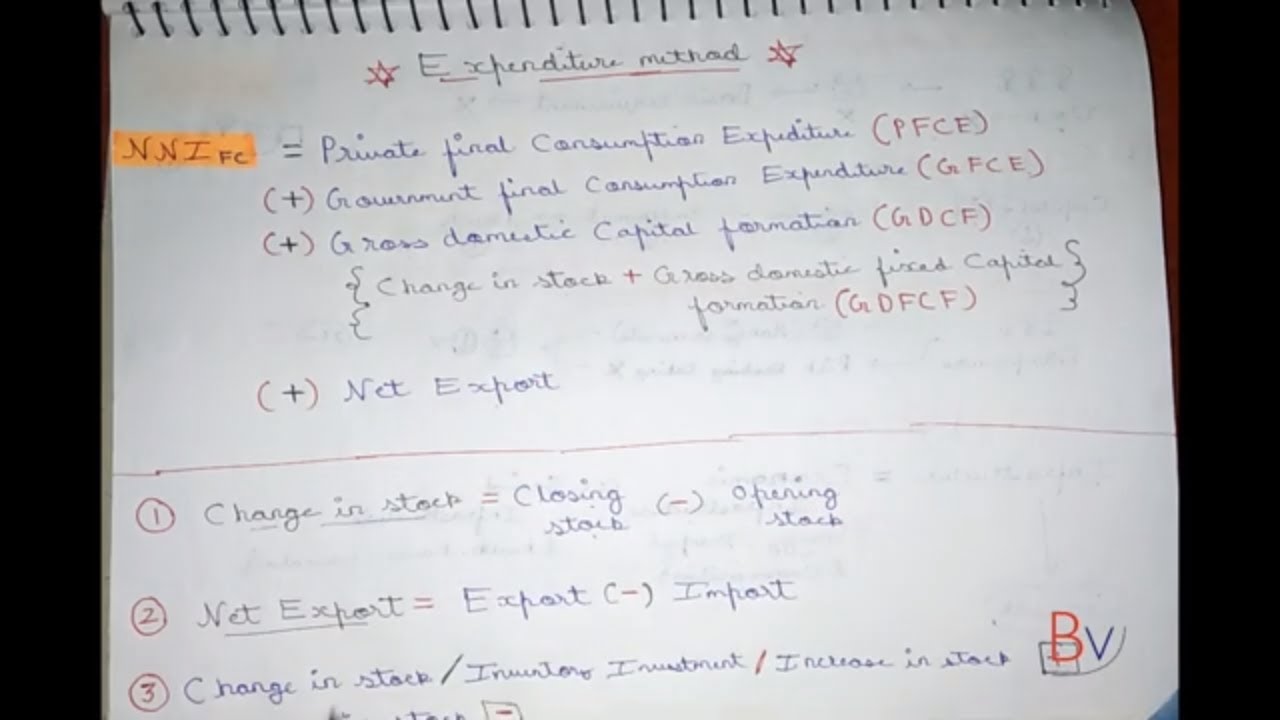 ☆ Expenditure method ☆
NNI FC = Private final Consumption Expediture (PFCE)
(+) Government final Consumption Expenditure (GFCE)
(+) Gross domestic Capital formation (GDCF)
{ Change in stock + Gross domestic fixed Capital }
{ formation (GDFCF) }
(+) Net Export
① Change in stock = Closing stock (-) Opening stock
② Net Export = Export (-) Import
③ Change in stock / Inventory Investment / Increase in stock
stock -
BV